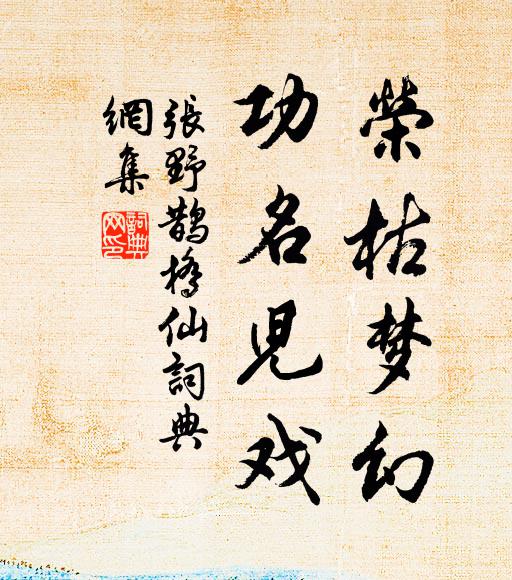 榮枯梦幻
功名児戏
張野鵲橋仙詞典
網集
詞典
网印